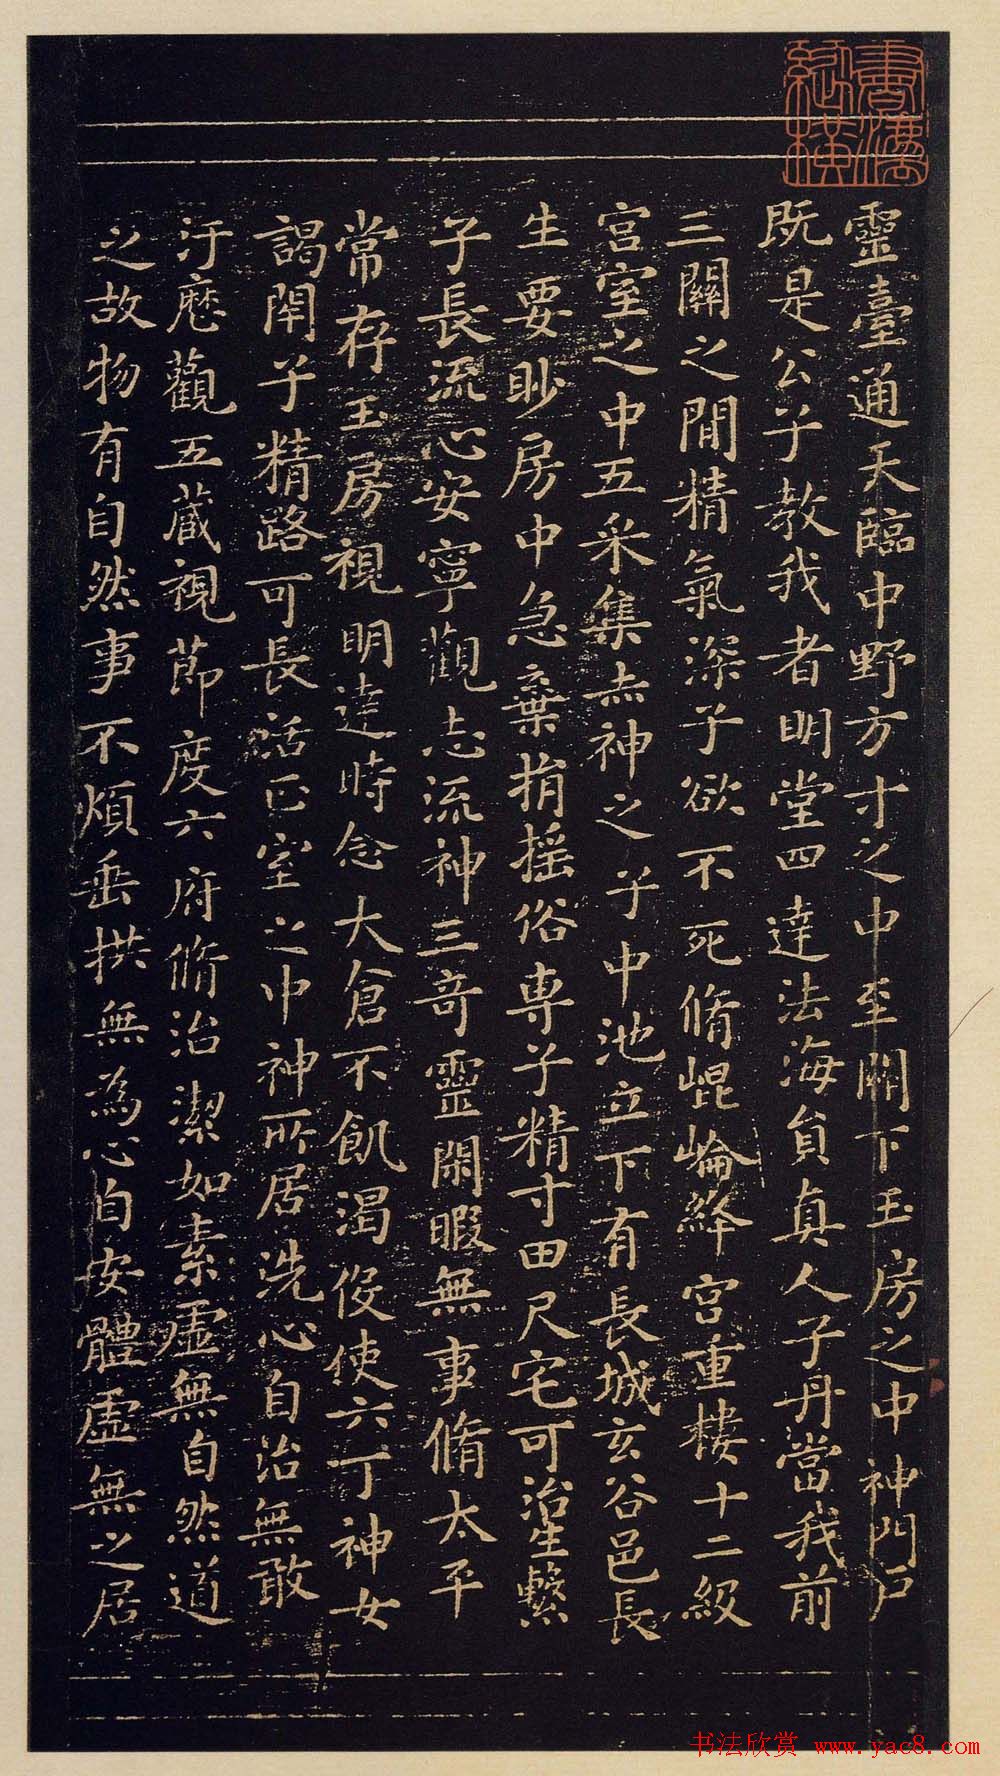 書灋縱橫
靈臺通天臨中野方寸之中至關下玉房之中神門戶
既是公子教我者明堂四達法海員真人子丹當我前
三關之間精氣深子欲不死脩崐崘絳宮重樓十二級
宮室之中五采集赤神之子中池立下有長城玄谷邑長
生要眇房中急棄捐搖俗專子精寸田尺宅可治生繫
子長流心安寧觀志流神三奇靈閑暇無事脩太平
常存玉房視明達時念大倉不飢渴役使六丁神女
謁閉子精路可長活正室之中神所居洗心自治無敢
汙歷觀五藏視節度六府脩治潔如素虛無自然道
之故物有自然事不煩垂拱無為心自安體虛無之居
书法欣赏 www.yac8.com